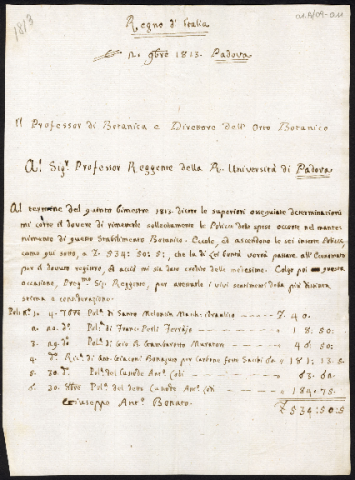 1813
Regno d'Italia
20. 9bre 1813. Padova
Il Professor di Botanica e Direttore dell'Orto Botanico
Al Sigr Professor Reggente della R. Università di Padova
Al termine del quinto bimestre 1813. dietro le superiori ossequiate determinazioni
mi corre il dovere di rimettere sollecitamente le Polizze delle spese occorse nel mante-
nimento di questo Stabilimento Botanico. Queste, ed ascendono le sei inserte Polizze,
come qui sotto, a £ 534: 50: 5:, che la di Lei bontà vorrà passare all'Economato
per il dovuto registro, e acciò mi sia dato credito delle medesime. Colgo poi questa
occasione, Sigr Reggente, per avanzarle i vivi sentimenti della più distinta
stima e considerazione.
Poli N.o 1. 4. 7bre Poli di Santo £ 40.
2. 20. do Poli di Franco Ferrajo 18. 50:
3. 29. do Poli di Gio B. Gamba Murator 46. 50:
4. do di Ant. Giaconi per Carbone 181: 13. 5
5. 30. do Poli del Custode Anto 63. 60.
6. 30. 8bre Poli del detto Custode Anto 184. 75.
£ 534: 50: 5
Giuseppe Anto Bonato.